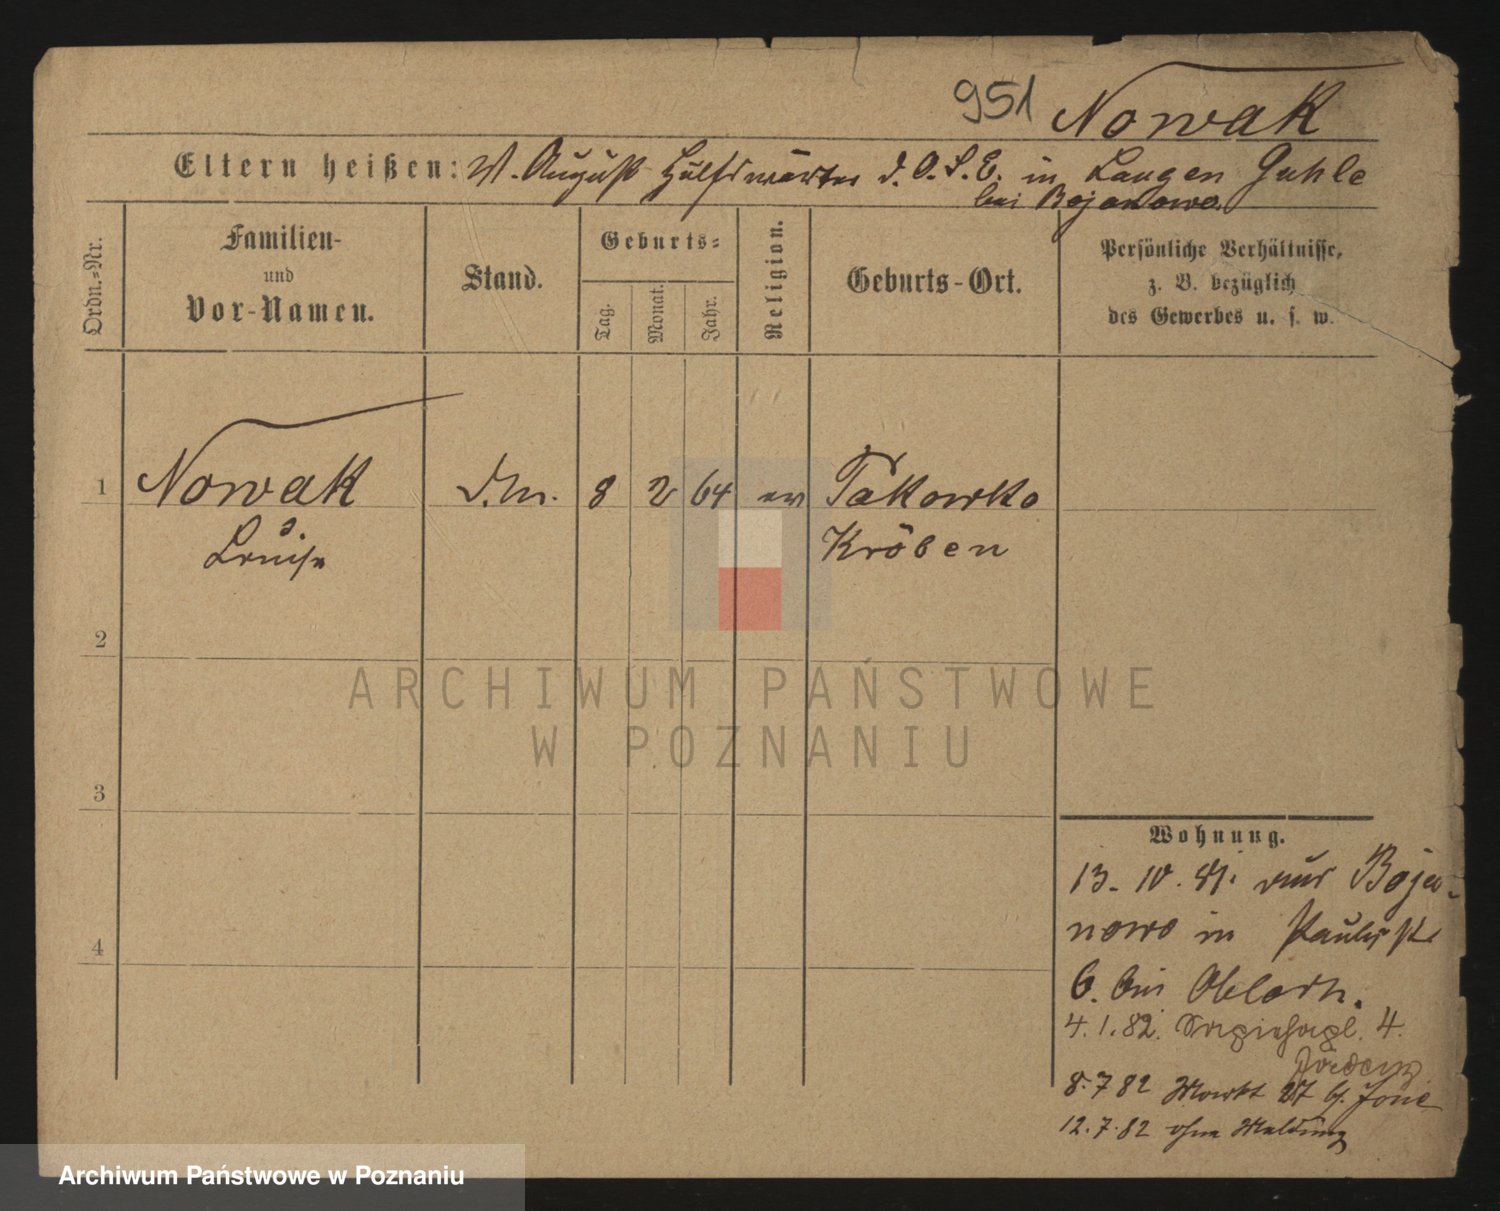 951 Nowak
Eltern heißen: V. August Hülfswärter d. O. S. E. in Langen Guhle
bei Bojanowo.
Ordn.-Nr.
Familien-
und
Vor-Namen.
Stand.
Geburts-
Tag.
Monat.
Jahr.
Religion.
Geburts-Ort.
Persönliche Verhältnisse,
z. B. bezüglich
des Gewerbes u. s. w.
1 Nowak d.m. 8 2 64 ev Takowko
Louise Kröben
2
3
4
Wohnung.
13. 10. 81. aus Boja-
nowo in Paulistr
6. bei
4. 1. 82. 4.
8. 7 82 Markt
12. 7. 82 ohne Meldung
ARCHIWUM PAŃSTWOWE
W POZNANIU
Archiwum Państwowe w Poznaniu